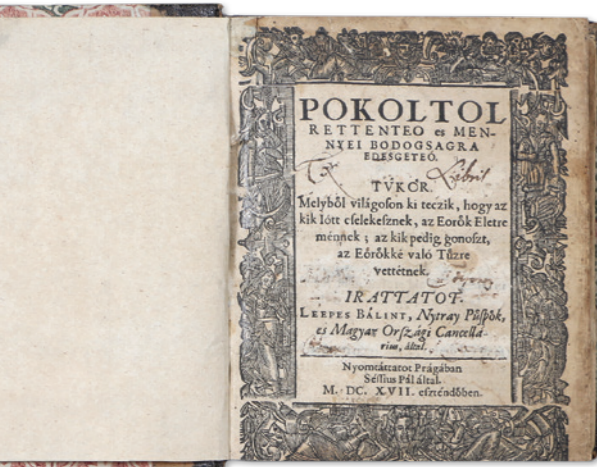 POKOLTOL
RETTENTEO es MEN-
NYEI BODOGSAGRA
EDESGETEÓ.
TVKÓR.
Melyből világoson ki teczik, hogy az
kik Iótt cſelekeſznek, az Eorők Eletre
ménnek ; az kik pedig gonoſzt,
az Eőrőkké való Tűzre
vettétnek.
IRATTATOT.
LEEPES BÁLINT, Nytray Pűſpők,
es Magyar Orſzági Cancellá-
rius, által.
Nyomtáttatot Prágában
Séſſius Pál által.
M. DC. XVII. eſztendőben.